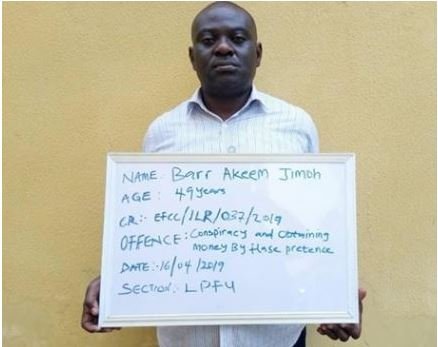 NAME: Barr Akeem Jimoh
AGE: 49years
CR:- EFCC/ILR/037/2019
OFFENCE: Conspiracy and Obtaining
money By flase pretence
DATE:-16/04/2019
SECTION:- LPFU